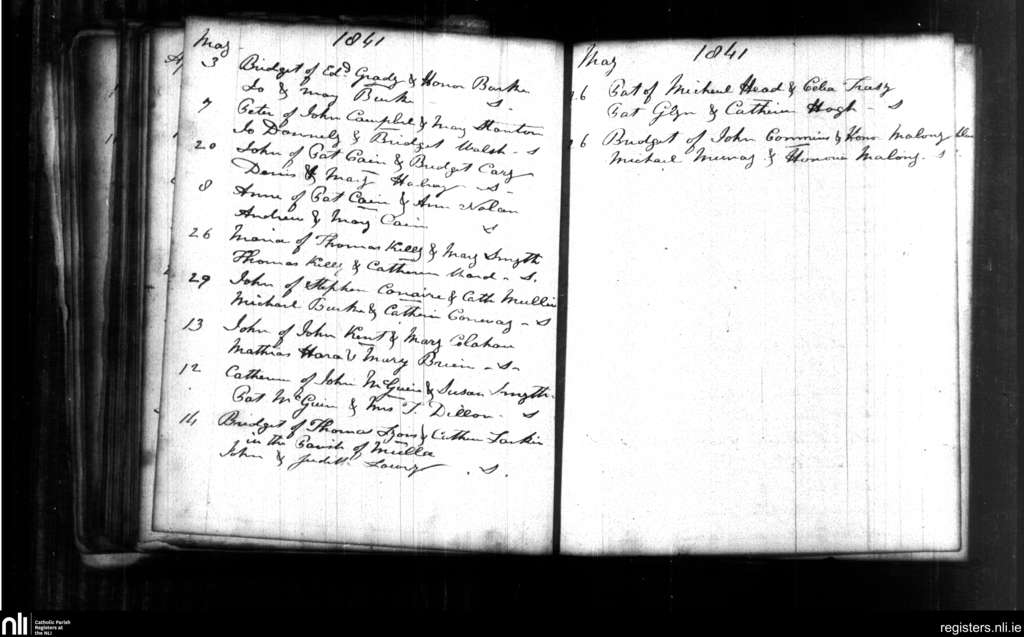 May 1841
3 Bridget of Edd Grady & Honor Burke
Jo & May Burke S.
7 Peter of John Campbel & May Stanton
Jo Donnely & Bridget Walsh - S
20 John of Pat Cain & Bridget Cary
Denis & Mary - S -
8 Anne of Pat Cain & Ann Nolan
Andrew & Mary Cain S
26 Maria of Thomas Kelly & Mary Smyth
Thomas Kelly & Catherine Ward - S.
29 John of Stephen Conaire & Cath Mullin
Michael Burke & Catherin Conway - S
13 John of John Kent & Mary Colahan
Mathias Hara & Mary Brien - S -
12 Catherin of John McGuire & Susan Smyth -
Pat McGuire & Mrs T Dillon - S
14 Bridget of Thomas Lyons & Cathin Larkin
in the Parish of
John & Judith . S .
May 1841
26 Pat of Michael Head & Celia
Pat Glyn & Catherin - S
26 Bridget of John Commins & Honor Malony
Michael Murray & Honoria Malony . S
nli
Catholic Parish
Registers at
the NLI
registers.nli.ie